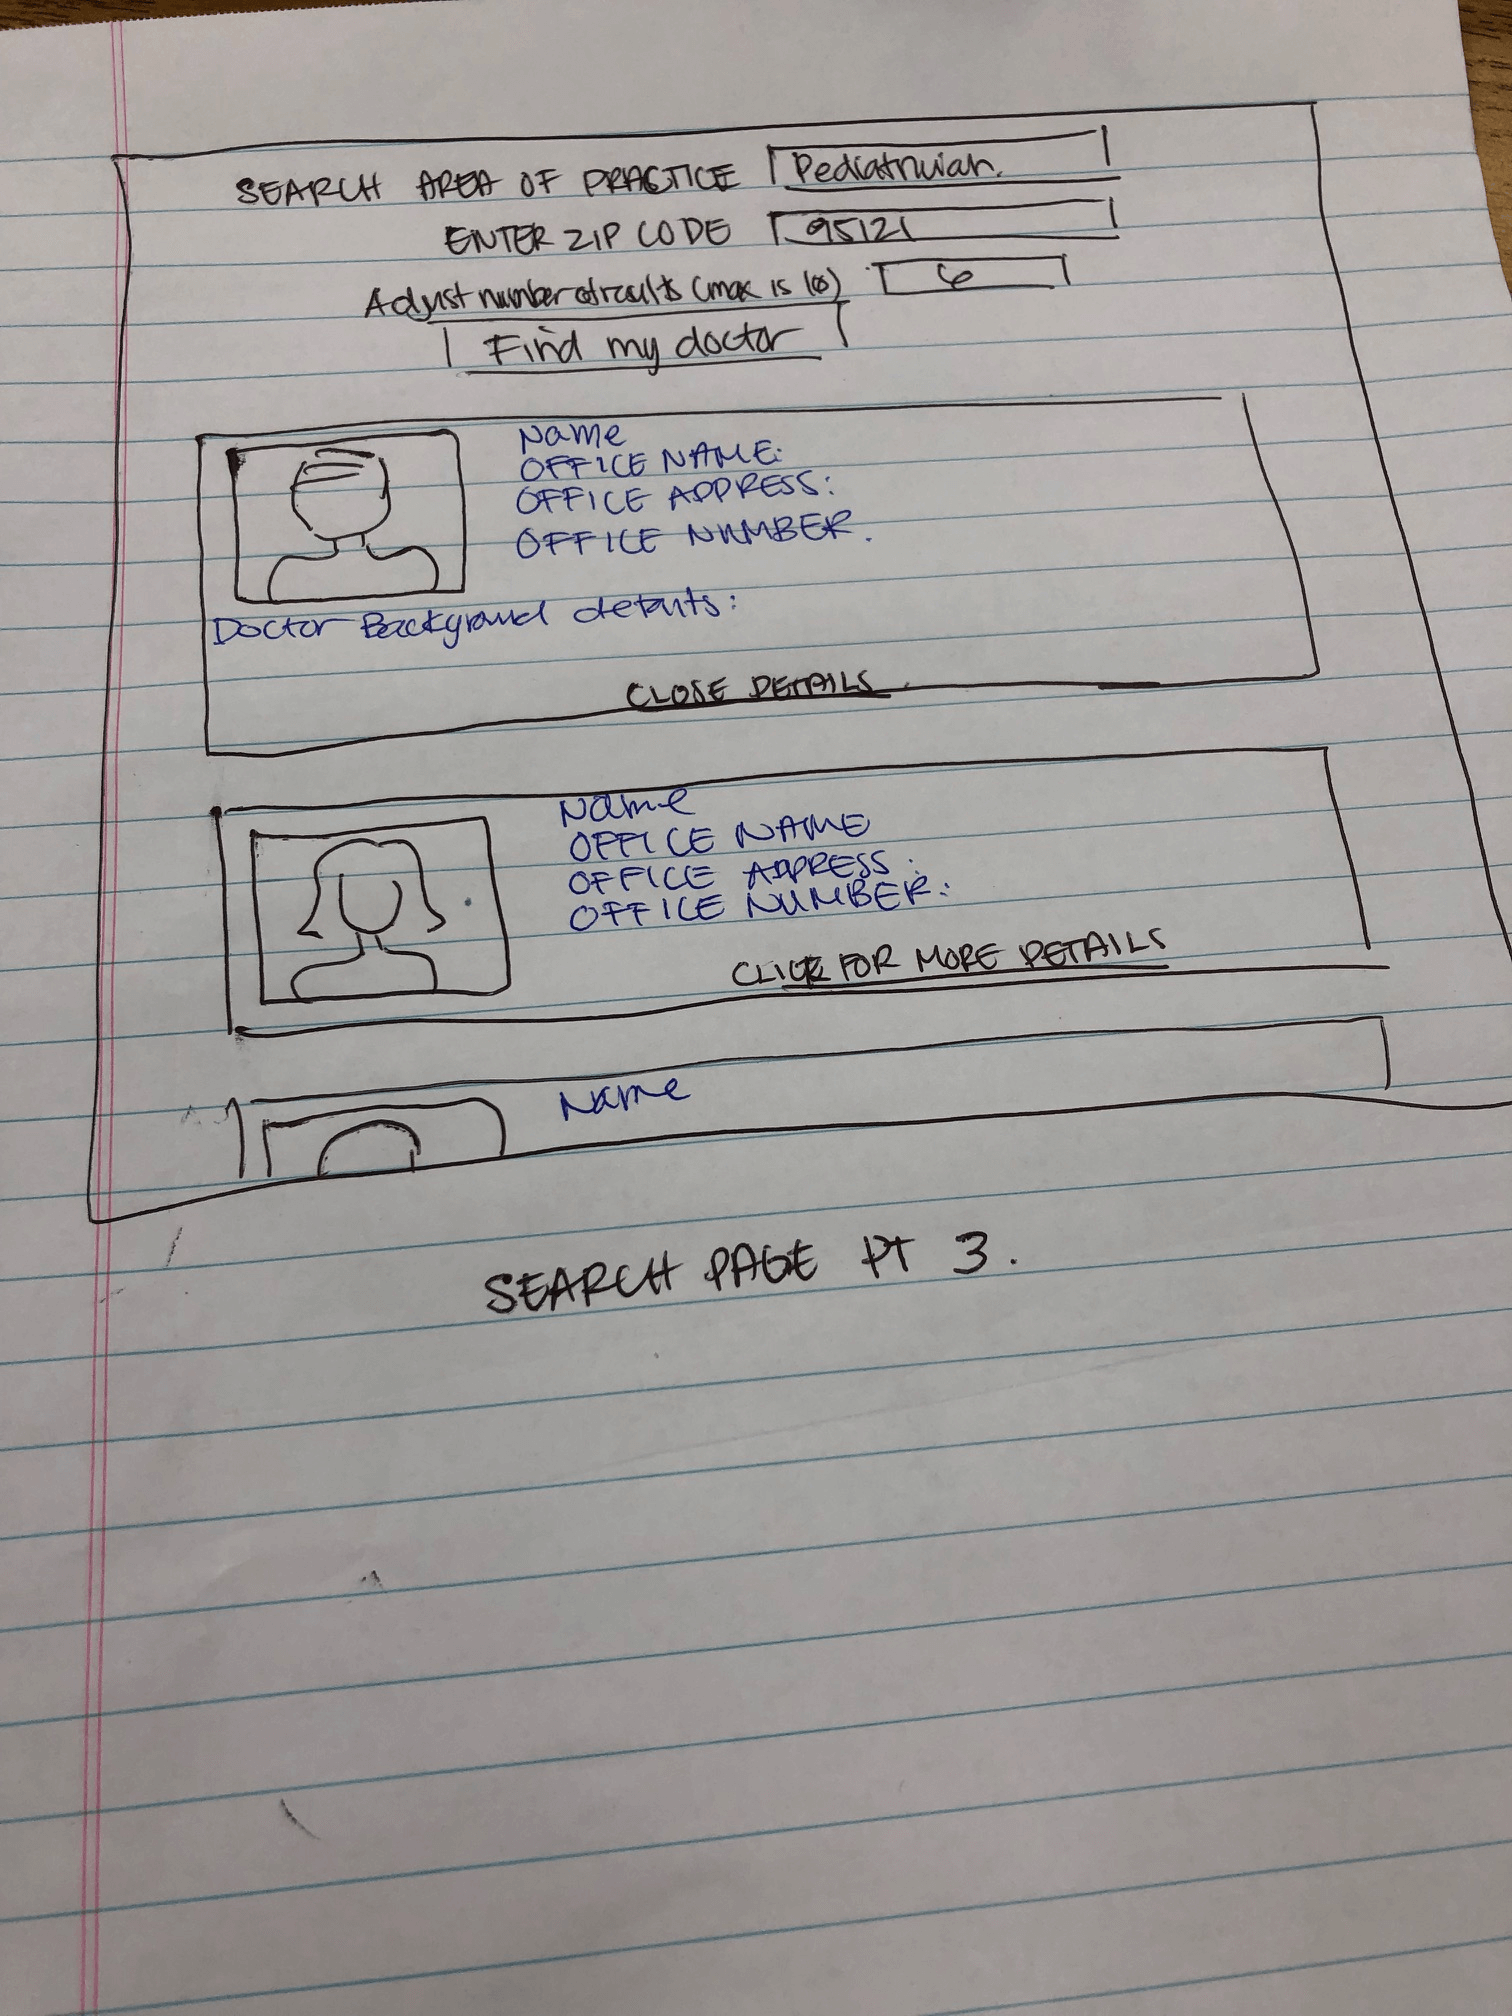 SEARCH AREA OF PRACTICE Pediatrician.
ENTER ZIP CODE 95121
Adjust number of results (max is 10) 6
Find my doctor
Name
OFFICE NAME:
OFFICE ADDRESS:
OFFICE NUMBER.
Doctor Background details:
CLOSE DETAILS
Name
OFFICE NAME
OFFICE ADDRESS:
OFFICE NUMBER:
CLICK FOR MORE DETAILS
Name
SEARCH PAGE PT 3.